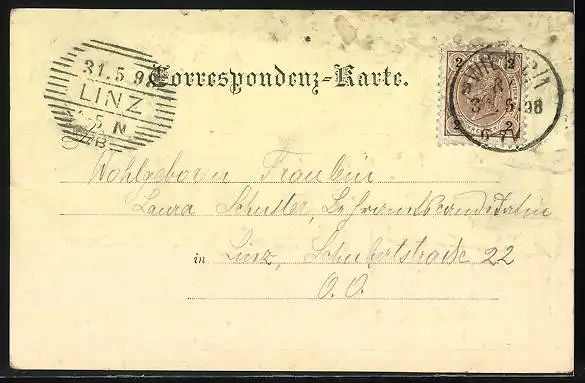 31.5.98
LINZ
5 N
B
Correspondenz-Karte.
2 2
31 5 98
2 2
Wohlgeborn Fräulein
Laura Schuller, Lehramtskandidatin
in Linz, Schubertstraße 22
O. Ö.